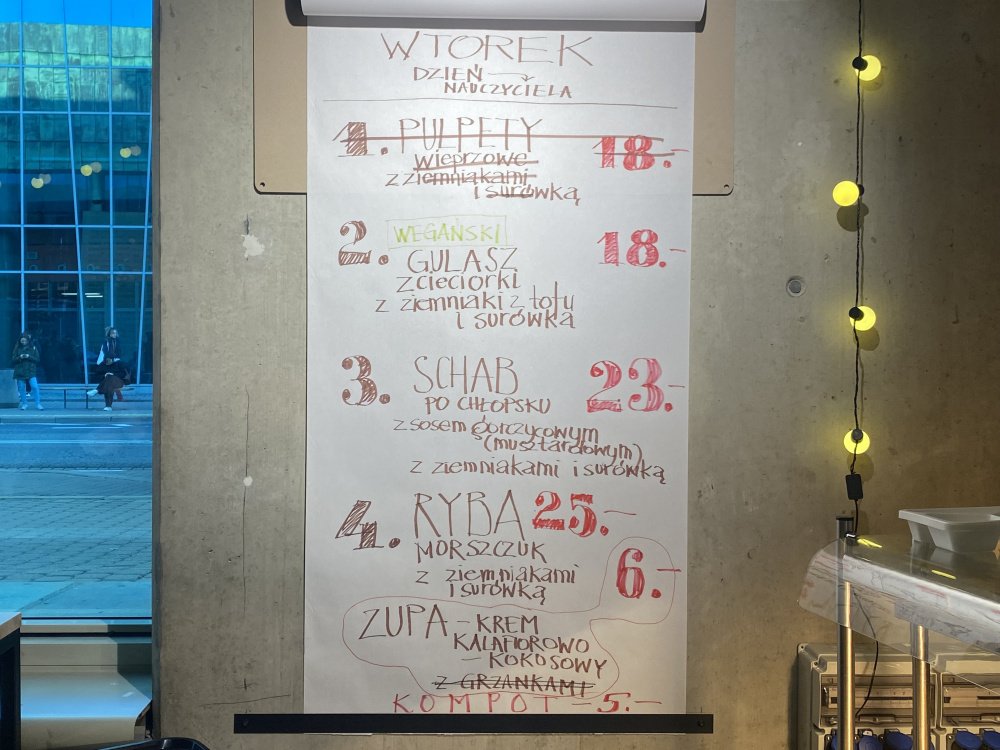 WTOREK
DZIEŃ
NAUCZYCIELA
1. PULPETY 18.-
wieprzowe
z ziemniakami
i surówką
2. WEGAŃSKI 18.-
GULASZ
z cieciorki
z ziemniaki z tofu
i surówką
3. SCHAB 23.-
PO CHŁOPSKU
z sosem gorczycowym
(musztardowym)
z ziemniakami i surówką
4. RYBA 25.-
MORSZCZUK
z ziemniakami
i surówką
6.-
ZUPA - KREM
KALAFIOROWO
- KOKOSOWY
Z GRZANKAMI
KOMPOT - 5.-